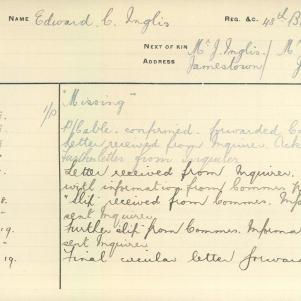 NAME Edward C. Inglis REG. &C. 48th B
NEXT OF KIN Mr J. Inglis /
ADDRESS Jamestown /
"Missing"
P/Cable. confirmed. forwarded
Letter received from Inquirer. Ack
further letter from Inquirer
Letter received from Inquirer.
with information from Commrs.
8. "Slip" received from Commrs. Infor
sent Inquirer
19. Further slip from Commrs. Informat
sent Inquirer
19. Final circular letter forward